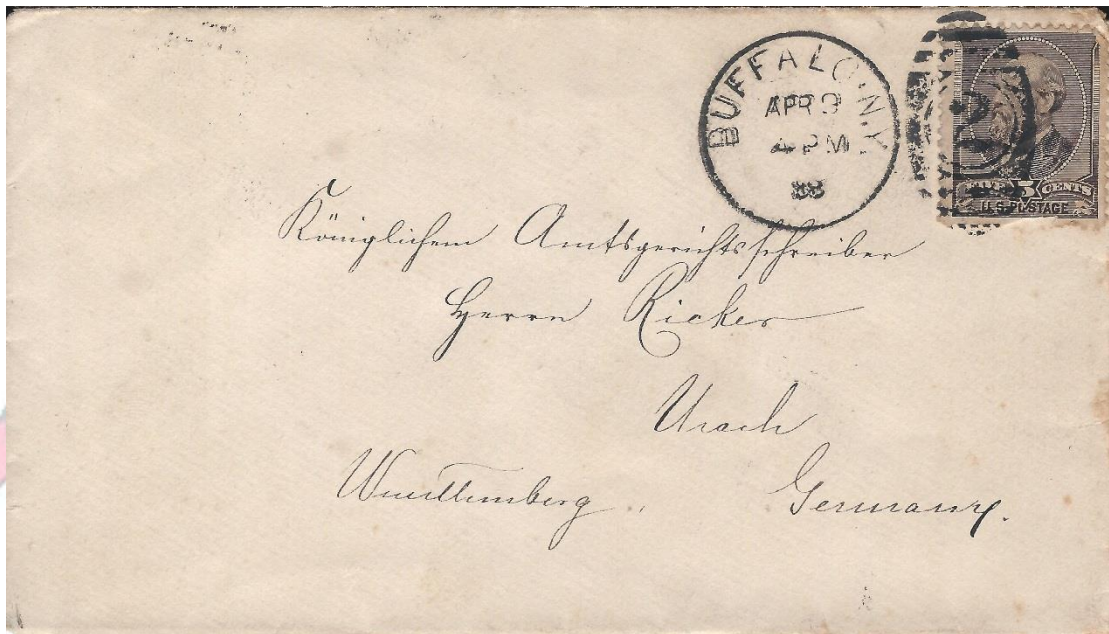 BUFFALO N.Y.
APR 9
4 PM
88
2
5 CENTS
U.S. POSTAGE
Königlichem Amtsgerichtsschreiber
Herrn Ricker
Urach
Württemberg. Germany.